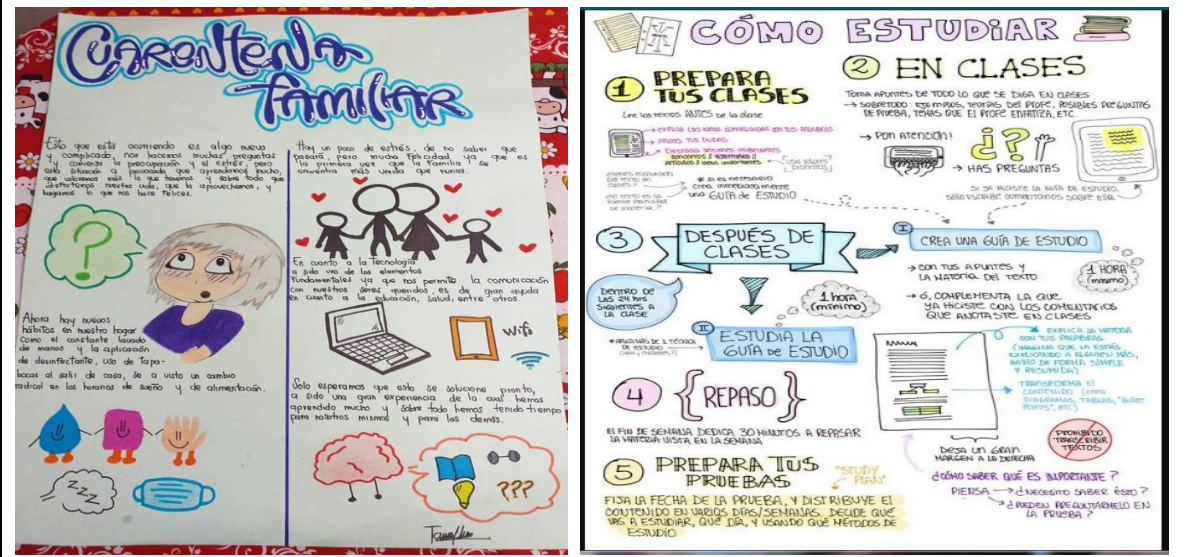 CUARENTENA
FAMILIAR
Esto que esta ocurriendo es algo nuevo
y complicado, nos hacemos muchas preguntas
y comienza la preocupación y el estrés, pero
esta situación a provocado que aprendamos mucho,
que valoremos más lo que tenemos y sobre todo que
disfrutemos nuestra vida, que la aprovechemos, y
hagamos lo que nos hace felices.
?
Ahora hay nuevos
hábitos en nuestro hogar
como el constante lavado
de manos y la aplicación
de desinfectante, uso de tapa-
bocas al salir de casa, se a visto un cambio
radical en los horarios de sueño y de alimentación.
z z z
Hay un poco de estrés, de no saber que
pasará, pero mucha felicidad ya que es
la primera vez que la familia se
encuentra más unida que nunca.
En cuanto a la tecnología
a sido uno de los elementos
fundamentales ya que nos permite la comunicación
con nuestros seres queridos, es de gran ayuda
en cuanto a la educación, salud, entre otros.
Wifi
Solo esperamos que esto se solucione pronto,
a sido una gran experiencia de la cual hemos
aprendido mucho y sobre todo hemos tenido tiempo
para nosotros mismos y para los demás.
???
CÓMO ESTUDIAR
1 PREPARA
TUS CLASES
Lee los textos ANTES de la clase
→ explica las ideas complicadas con tus palabras
→ Anota tus dudas
→ Destaca secciones importantes
usa colores
* si es necesario
crea inmediatamente
una GUÍA de ESTUDIO
2 EN CLASES
TOMA APUNTES DE TODO LO QUE SE DIGA EN CLASES
→ SOBRETODO: EJEMPLOS, TEORÍAS DEL PROFE, POSIBLES PREGUNTAS
DE PRUEBA, TEMAS QUE EL PROFE ENFATIZA, ETC.
→ PON ATENCIÓN!
¿?
→ HAS PREGUNTAS
SI YA HICISTE LA GUÍA DE ESTUDIO,
SÓLO ESCRIBE COMENTARIOS SOBRE ELLA
3 DESPUÉS DE
CLASES
DENTRO DE
LAS 24 hrs
SIGUIENTES A
LA CLASE
I
CREA UNA GUÍA DE ESTUDIO
1 HORA
(mínimo)
→ CON TUS APUNTES Y
LA MATERIA DEL TEXTO
→ Ó, COMPLEMENTA LA QUE
YA HICISTE CON LOS COMENTARIOS
QUE ANOTASTE EN CLASES
1 hora
(mínimo)
II
ESTUDIA LA
GUÍA DE ESTUDIO
EXPLICA LA MATERIA
CON TUS PALABRAS
(IMAGINA QUE LA ESTÁS
EXPLICANDO A ALGUIEN MÁS,
HAZLO DE FORMA SIMPLE
Y RESUMIDA)
TRANSFORMA EL
CONTENIDO (CREA
DIAGRAMAS, TABLAS,
ETC)
PROHIBIDO
TRANSCRIBIR
TEXTOS
DEJA UN GRAN
MARGEN A LA DERECHA
4 { REPASO }
EL FIN DE SEMANA DEDICA 30 MINUTOS A REPASAR
LA MATERIA VISTA EN LA SEMANA
5 PREPARA TUS
PRUEBAS
"STUDY
PLAN"
FIJA LA FECHA DE LA PRUEBA, Y DISTRIBUYE EL
CONTENIDO EN VARIOS DÍAS/SEMANAS. DECIDE QUÉ
VAS A ESTUDIAR, QUÉ DÍA, Y USANDO QUÉ MÉTODOS DE
ESTUDIO
¿CÓMO SABER QUÉ ES IMPORTANTE?
PIENSA → ¿NECESITO SABER ÉSTO?
→ ¿PUEDEN PREGUNTÁRMELO EN
LA PRUEBA?